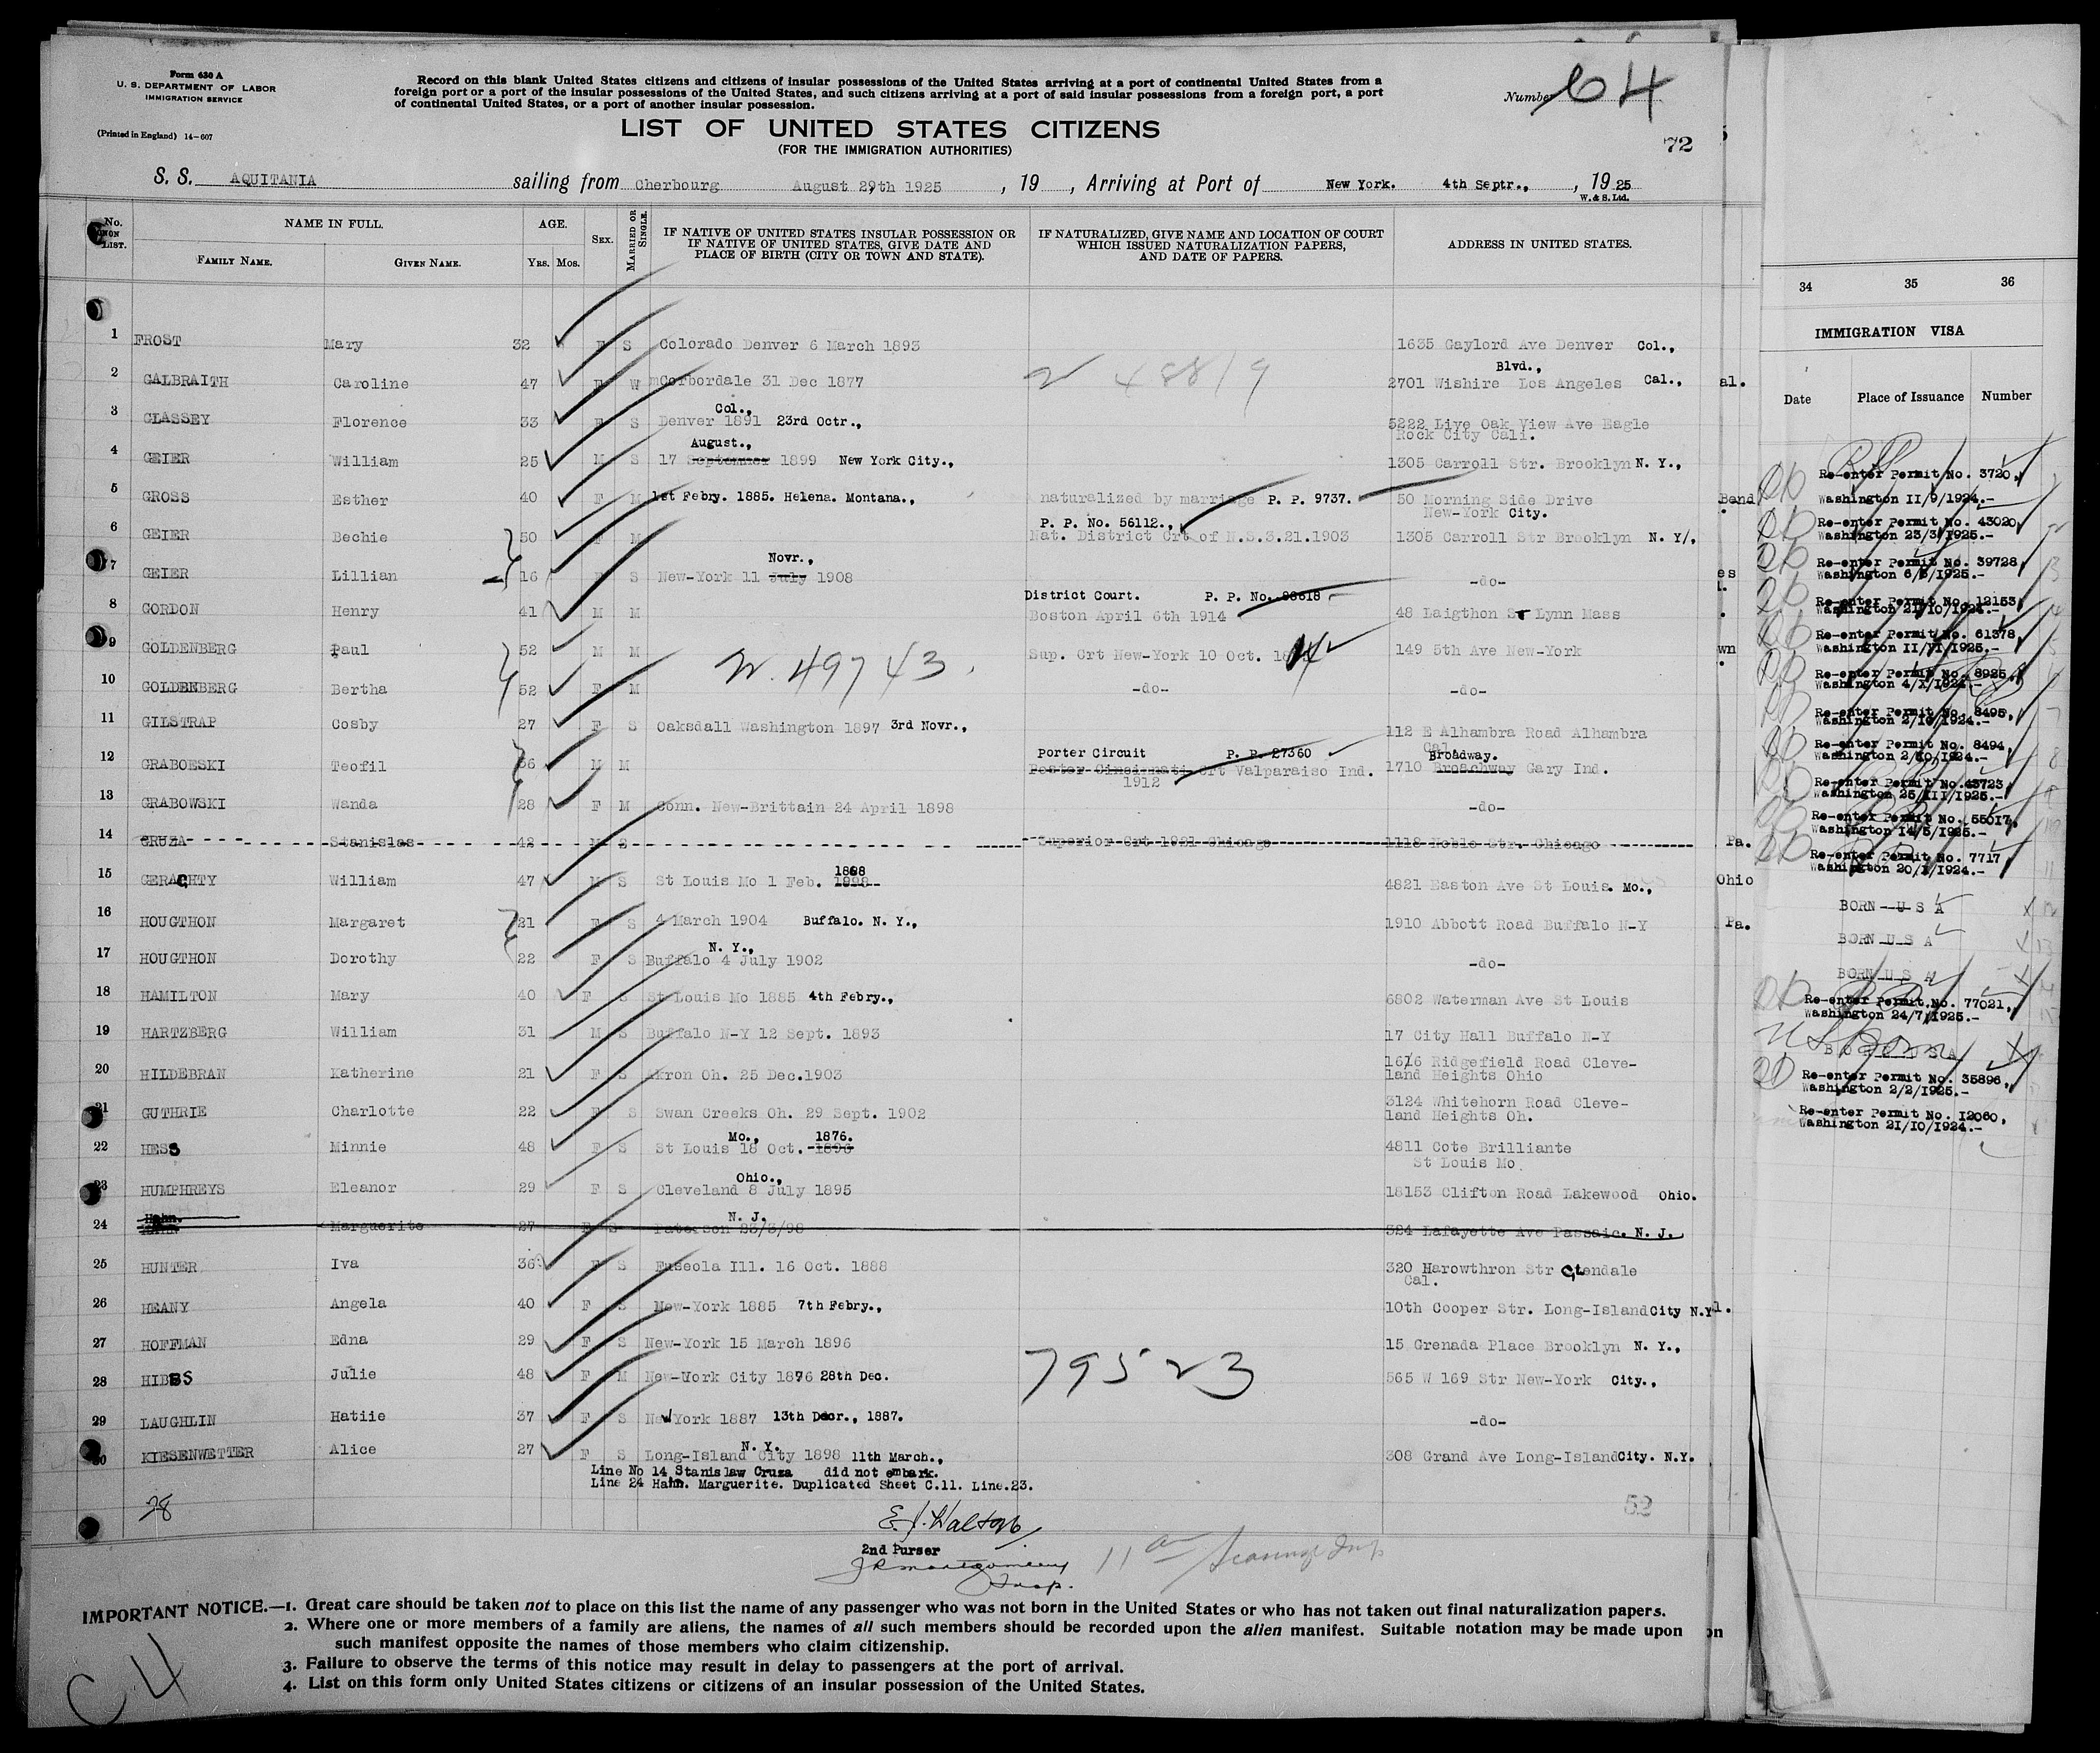 Form 630 A
U. S. DEPARTMENT OF LABOR
IMMIGRATION SERVICE
(Printed in England) 14-607
Record on this blank United States citizens and citizens of insular possessions of the United States arriving at a port of continental United States from a
foreign port or a port of the insular possessions of the United States, and such citizens arriving at a port of said insular possessions from a foreign port, a port
of continental United States, or a port of another insular possession.
Number 64
LIST OF UNITED STATES CITIZENS
(FOR THE IMMIGRATION AUTHORITIES)
72
S. S. AQUITANIA sailing from Cherbourg August 29th 1925 , 19 , Arriving at Port of New York. 4th Septr., , 19 25
W. & S. Ltd.
No. ON LIST. NAME IN FULL. FAMILY NAME. GIVEN NAME. AGE. Yrs. Mos. SEX. MARRIED OR SINGLE. IF NATIVE OF UNITED STATES INSULAR POSSESSION OR IF NATIVE OF UNITED STATES, GIVE DATE AND PLACE OF BIRTH (CITY OR TOWN AND STATE). IF NATURALIZED, GIVE NAME AND LOCATION OF COURT WHICH ISSUED NATURALIZATION PAPERS, AND DATE OF PAPERS. ADDRESS IN UNITED STATES.
1 FROST Mary 32 F S Colorado Denver 6 March 1893 1635 Gaylord Ave Denver Col.,
2 GALBRAITH Caroline 47 F W Corbordale 31 Dec 1877 48819 2701 Wishire Blvd., Los Angeles Cal.,
3 GLASSEY Florence 33 F S Denver Col., 1891 23rd Octr., 5222 Live Oak View Ave Eagle
Rock City Cali.
4 GEIER William 25 M S 17 September August., 1899 New York City., 1305 Carroll Str. Brooklyn N. Y.,
5 GROSS Esther 40 F M 1st Febry. 1885. Helena. Montana., naturalized by marriage P. P. 9737. 50 Morning Side Drive
New-York City.
P. P. No. 56112.,
6 GEIER Bechie 50 F M Nat. District Crt of N.S.3.21.1903 1305 Carroll Str Brooklyn N. Y/,
7 GEIER Lillian 16 F S New-York 11 July Novr., 1908 -do-
District Court. P. P. No. 88618
8 GORDON Henry 41 M M Boston April 6th 1914 48 Laigthon Sr Lynn Mass
9 GOLDENBERG Paul 52 M M 49743. Sup. Crt New-York 10 Oct. 149 5th Ave New-York
10 GOLDENBERG Bertha 52 F M -do- -do-
11 GILSTRAP Cosby 27 F S Oaksdall Washington 1897 3rd Novr., 112 E Alhambra Road Alhambra
Cal.
Porter Circuit P. P. 27360 Broadway.
12 GRABOESKI Teofil 36 M M Poster Cincinnati Crt Valparaiso Ind. 1710 Broachway Gary Ind.
1912
13 GRABOWSKI Wanda 28 F M Conn. New-Brittain 24 April 1898 -do-
14 CRUZA Stanislas 42 M S Superior Crt 1921 Chicago 1118 Noble Str. Chicago
15 GERAGHTY William 47 M S St Louis Mo 1 Feb. 1898 4821 Easton Ave St Louis. Mo.,
16 HOUGTHON Margaret 21 F S 4 March 1904 Buffalo. N. Y., 1910 Abbott Road Buffalo N-Y
17 HOUGTHON Dorothy 22 F S Buffalo N. Y., 4 July 1902 -do-
18 HAMILTON Mary 40 F S St Louis Mo 1885 4th Febry., 6802 Waterman Ave St Louis
19 HARTZBERG William 31 M S Buffalo N-Y 12 Sept. 1893 17 City Hall Buffalo N-Y
20 HILDEBRAN Katherine 21 F S Akron Oh. 25 Dec.1903 1616 Ridgefield Road Cleve-
land Heights Ohio
21 GUTHRIE Charlotte 22 F S Swan Creeks Oh. 29 Sept. 1902 3124 Whitehorn Road Cleve-
land Heights Oh.
22 HESS Minnie 48 F S St Louis Mo., 18 Oct. 1896 1876. 4811 Cote Brilliante
St Louis Mo.
23 HUMPHREYS Eleanor 29 F S Cleveland Ohio., 8 July 1895 18153 Clifton Road Lakewood Ohio.
24 Hahn. Marguerite 27 F S Paterson N. J. 23/3/98 324 Lafayette Ave Passaic. N. J.
25 HUNTER Iva 36 F S Fuseola Ill. 16 Oct. 1888 320 Harowthron Str Glendale
Cal.
26 HEANY Angela 40 F S New-York 1885 7th Febry., 10th Cooper Str. Long-Island City N.Y
27 HOFFMAN Edna 29 F S New-York 15 March 1896 15 Grenada Place Brooklyn N. Y.,
28 HIBBS Julie 48 F M New-York City 1876 28th Dec. 79523 565 W 169 Str New-York City.,
29 LAUGHLIN Hatiie 37 F S New York 1887 13th Decr., 1887. -do-
30 KIESENWETTER Alice 27 F S Long-Island City N. Y. 1898 11th March., 308 Grand Ave Long-Island City. N.Y.
Line No 14 Stanislaw Cruza did not embark.
Line 24 Hahn. Marguerite. Duplicated Sheet C.11. Line.23.
28
52
E. J. Walton
2nd Purser
J R Montgomery
Insp.
IMPORTANT NOTICE.—1. Great care should be taken not to place on this list the name of any passenger who was not born in the United States or who has not taken out final naturalization papers.
2. Where one or more members of a family are aliens, the names of all such members should be recorded upon the alien manifest. Suitable notation may be made upon
such manifest opposite the names of those members who claim citizenship.
3. Failure to observe the terms of this notice may result in delay to passengers at the port of arrival.
4. List on this form only United States citizens or citizens of an insular possession of the United States.
C 4
al.
Bend
es
wn
Pa.
Ohio
Pa.
on
34 35 36
IMMIGRATION VISA
Date Place of Issuance Number
Re-enter Permit No. 3720,
Washington II/9/1924.-
Re-enter Permit No. 43020,
Washington 23/3/1925.-
Re-enter Permit No. 39728,
Washington 6/3/1925.-
Re-enter Permit No. 12153,
Washington 21/10/1924.-
Re-enter Permit No. 61378,
Washington II/VI/1925.-
Re-enter Permit No. 8925,
Washington 4/X/1924.-
Re-enter Permit No. 8495,
Washington 2/10/1924.-
Re-enter Permit No. 8494,
Washington 2/10/1924.-
Re-enter Permit No. 43723,
Washington 25/III/1925.-
Re-enter Permit No. 55017,
Washington 14/5/1925.-
Re-enter Permit No. 7717,
Washington 20/X/1924.-
BORN U S A
BORN U S A
BORN U S A
Re-enter Permit No. 77021,
Washington 24/7/1925.-
US Born
Re-enter Permit No. 35896,
Washington 2/2/1925.-
Re-enter Permit No. I2060,
Washington 21/10/1924.-